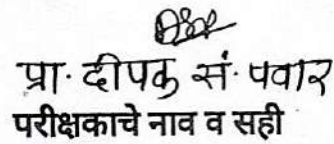 प्रा. दीपक सं. पवार
परीक्षकाचे नाव व सही